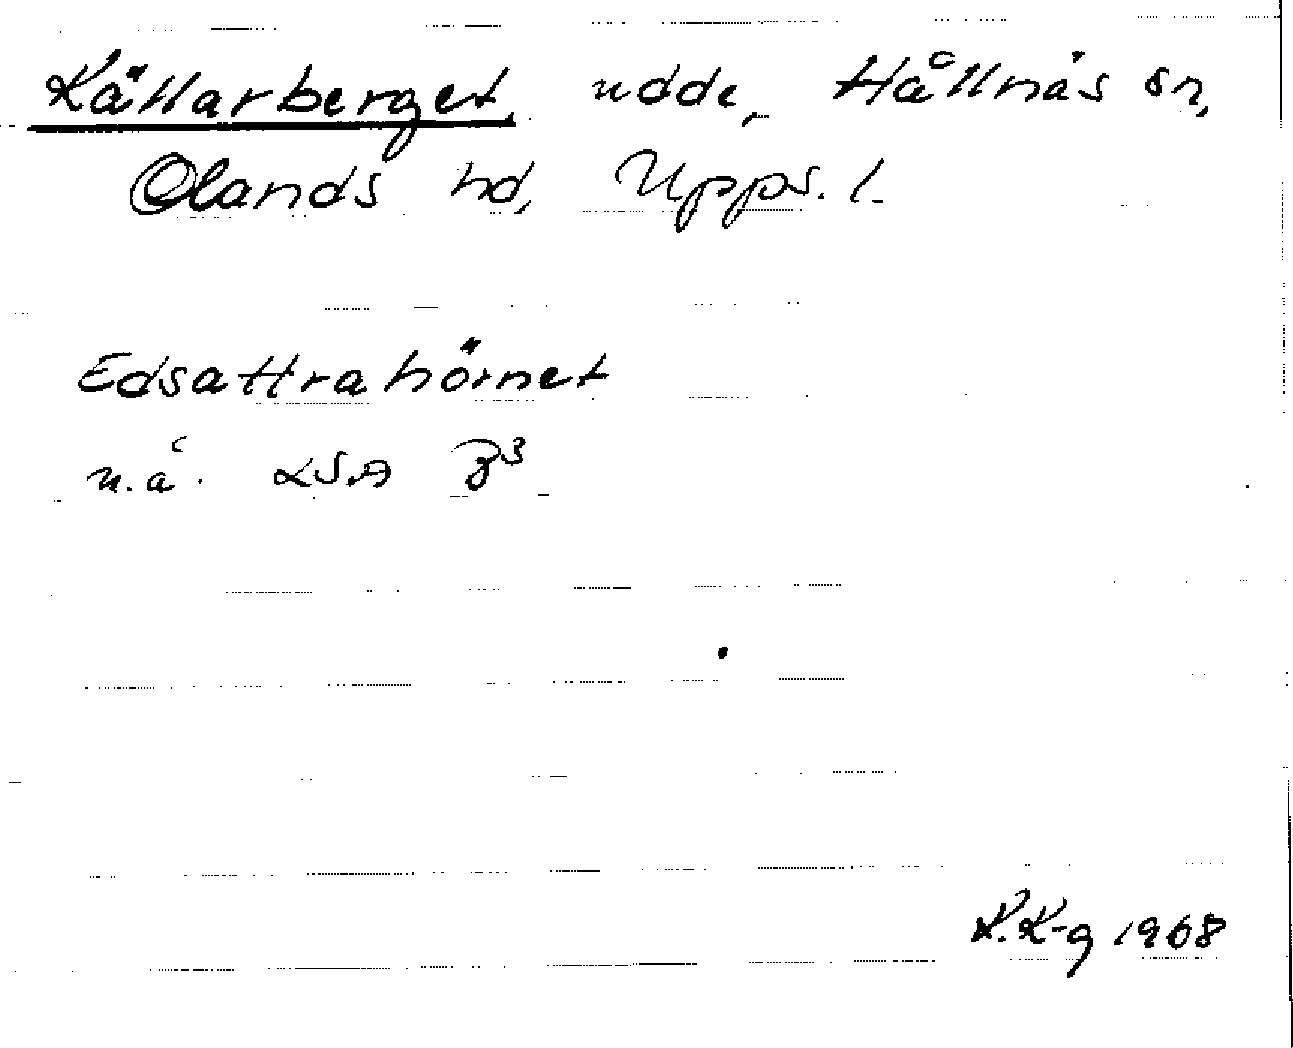 Källarberget, udde, Hållnäs sn,
Olands hd, Upps. l.
Edsattrahörnet
n.å. LSA B³
K.K-g 1968